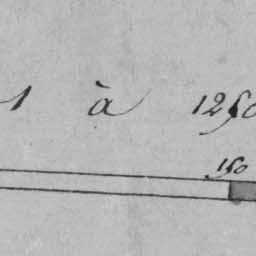 1 à 1250
150